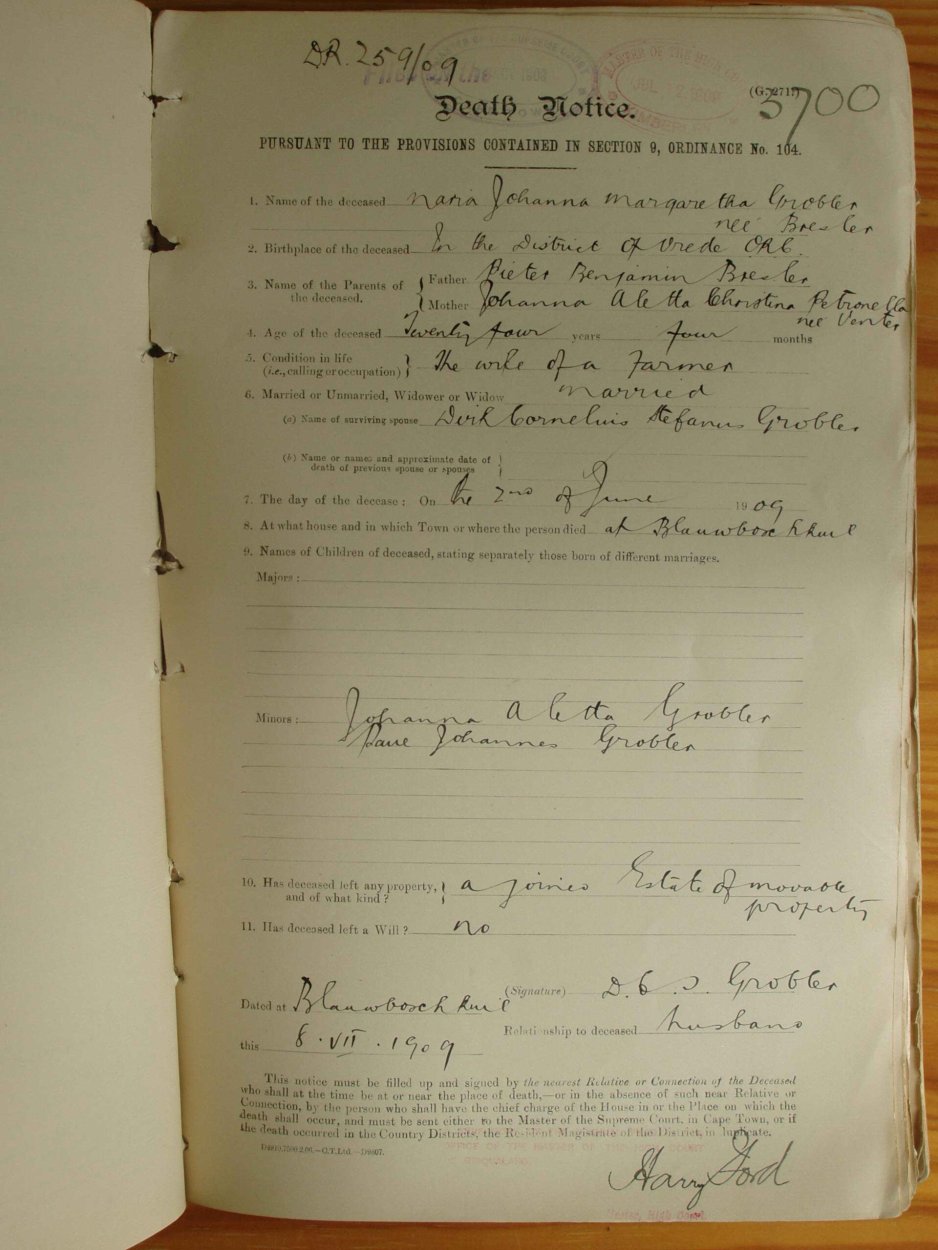 DR. 259/09
(G. 271)
5700
Death Notice.
PURSUANT TO THE PROVISIONS CONTAINED IN SECTION 9, ORDINANCE No. 104.
1. Name of the deceased Maria Johanna Margaretha Grobler
neé Bresler
2. Birthplace of the deceased In the District of Vrede ORC.
3. Name of the Parents of the deceased. Father Pieter Benjamin Bresler
Mother Johanna Aletta Christina Petronella
neé Venter
4. Age of the deceased Twenty four years four months
5. Condition in life (i.e., calling or occupation) the wife of a Farmer
6. Married or Unmarried, Widower or Widow married
(a) Name of surviving spouse Dirk Cornelius Stefanus Grobler
(b) Name or names and approximate date of death of previous spouse or spouses
7. The day of the decease: On the 2nd of June 1909
8. At what house and in which Town or where the person died at Blauwboschkuil
9. Names of Children of deceased, stating separately those born of different marriages.
Majors:
Minors: Johanna Aletta Grobler
Johannes Grobler
10. Has deceased left any property, and of what kind? a joined Estate of movable
property
11. Has deceased left a Will? no
(Signature) D. C. S. Grobler
Dated at Blauwboschkuil
Relationship to deceased husband
this 8 . VII . 1909
This notice must be filled up and signed by the nearest Relative or Connection of the Deceased
who shall at the time be at or near the place of death,—or in the absence of such near Relative or
Connection, by the person who shall have the chief charge of the House in or the Place on which the
death shall occur, and must be sent either to the Master of the Supreme Court, in Cape Town, or if
the death occurred in the Country Districts, the Resident Magistrate of the District, in Duplicate.
Harry Ford